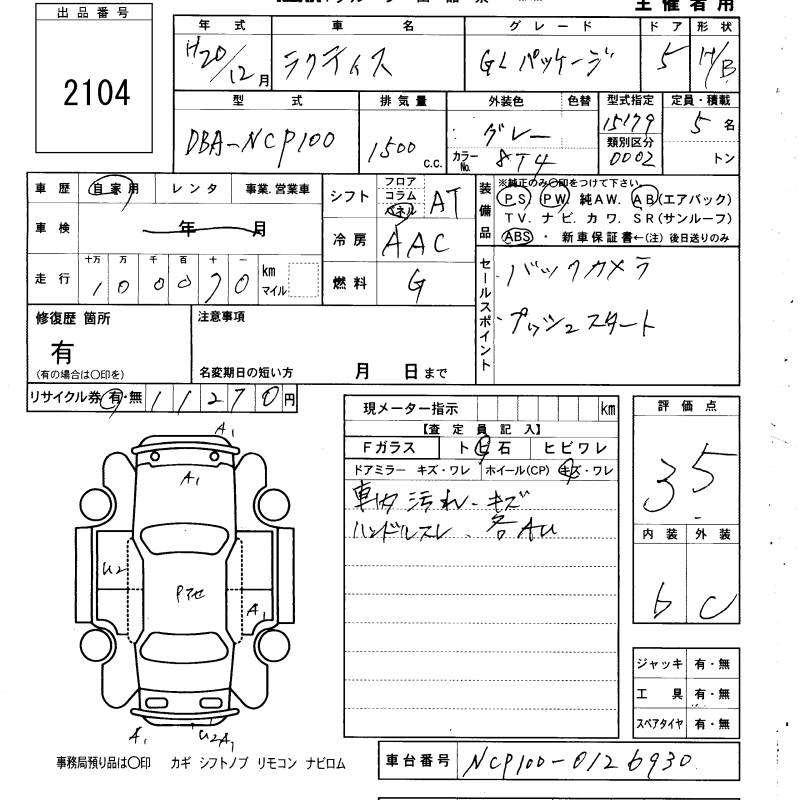 主催者用
出品番号
2104
年式 車名 グレード ドア 形状
H20/12月 ラクティス GLパッケージ 5 H/B
型式 排気量 外装色 色替 型式指定 定員・積載
DBA-NCP100 1500 c.c. グレー 15179 5名
カラーNo. 8T4 類別区分 0002 トン
車歴 自家用 レンタ 事業.営業車
車検 年 月
走行 十万 万 千 百 十 一 km マイル
シフト フロア コラム パネル AT
冷房 AAC
燃料 G
装備品 ※純正のみ〇印をつけて下さい。
PS PW 純AW. AB(エアバック)
TV. ナビ. カワ. SR(サンルーフ)
ABS ・ 新車保証書←(注) 後日送りのみ
セールスポイント
バックカメラ
プッシュスタート
修復歴 箇所
有
(有の場合は〇印を)
注意事項
名変期日の短い方 月 日まで
リサイクル券 有・無 11270円
現メーター指示 km
【査定員記入】
Fガラス トビ石 ヒビワレ
ドアミラー キズ・ワレ ホイール(CP) キズ・ワレ
車内汚れ・キズ
ハンドルスレ、各AU
評価点
3.5
内装 外装
b C
A1
A1
U2
Pアセ
A1
A1
U2A1
ジャッキ 有・無
工具 有・無
スペアタイヤ 有・無
事務局預り品は〇印 カギ シフトノブ リモコン ナビロム
車台番号 NCP100-0126930